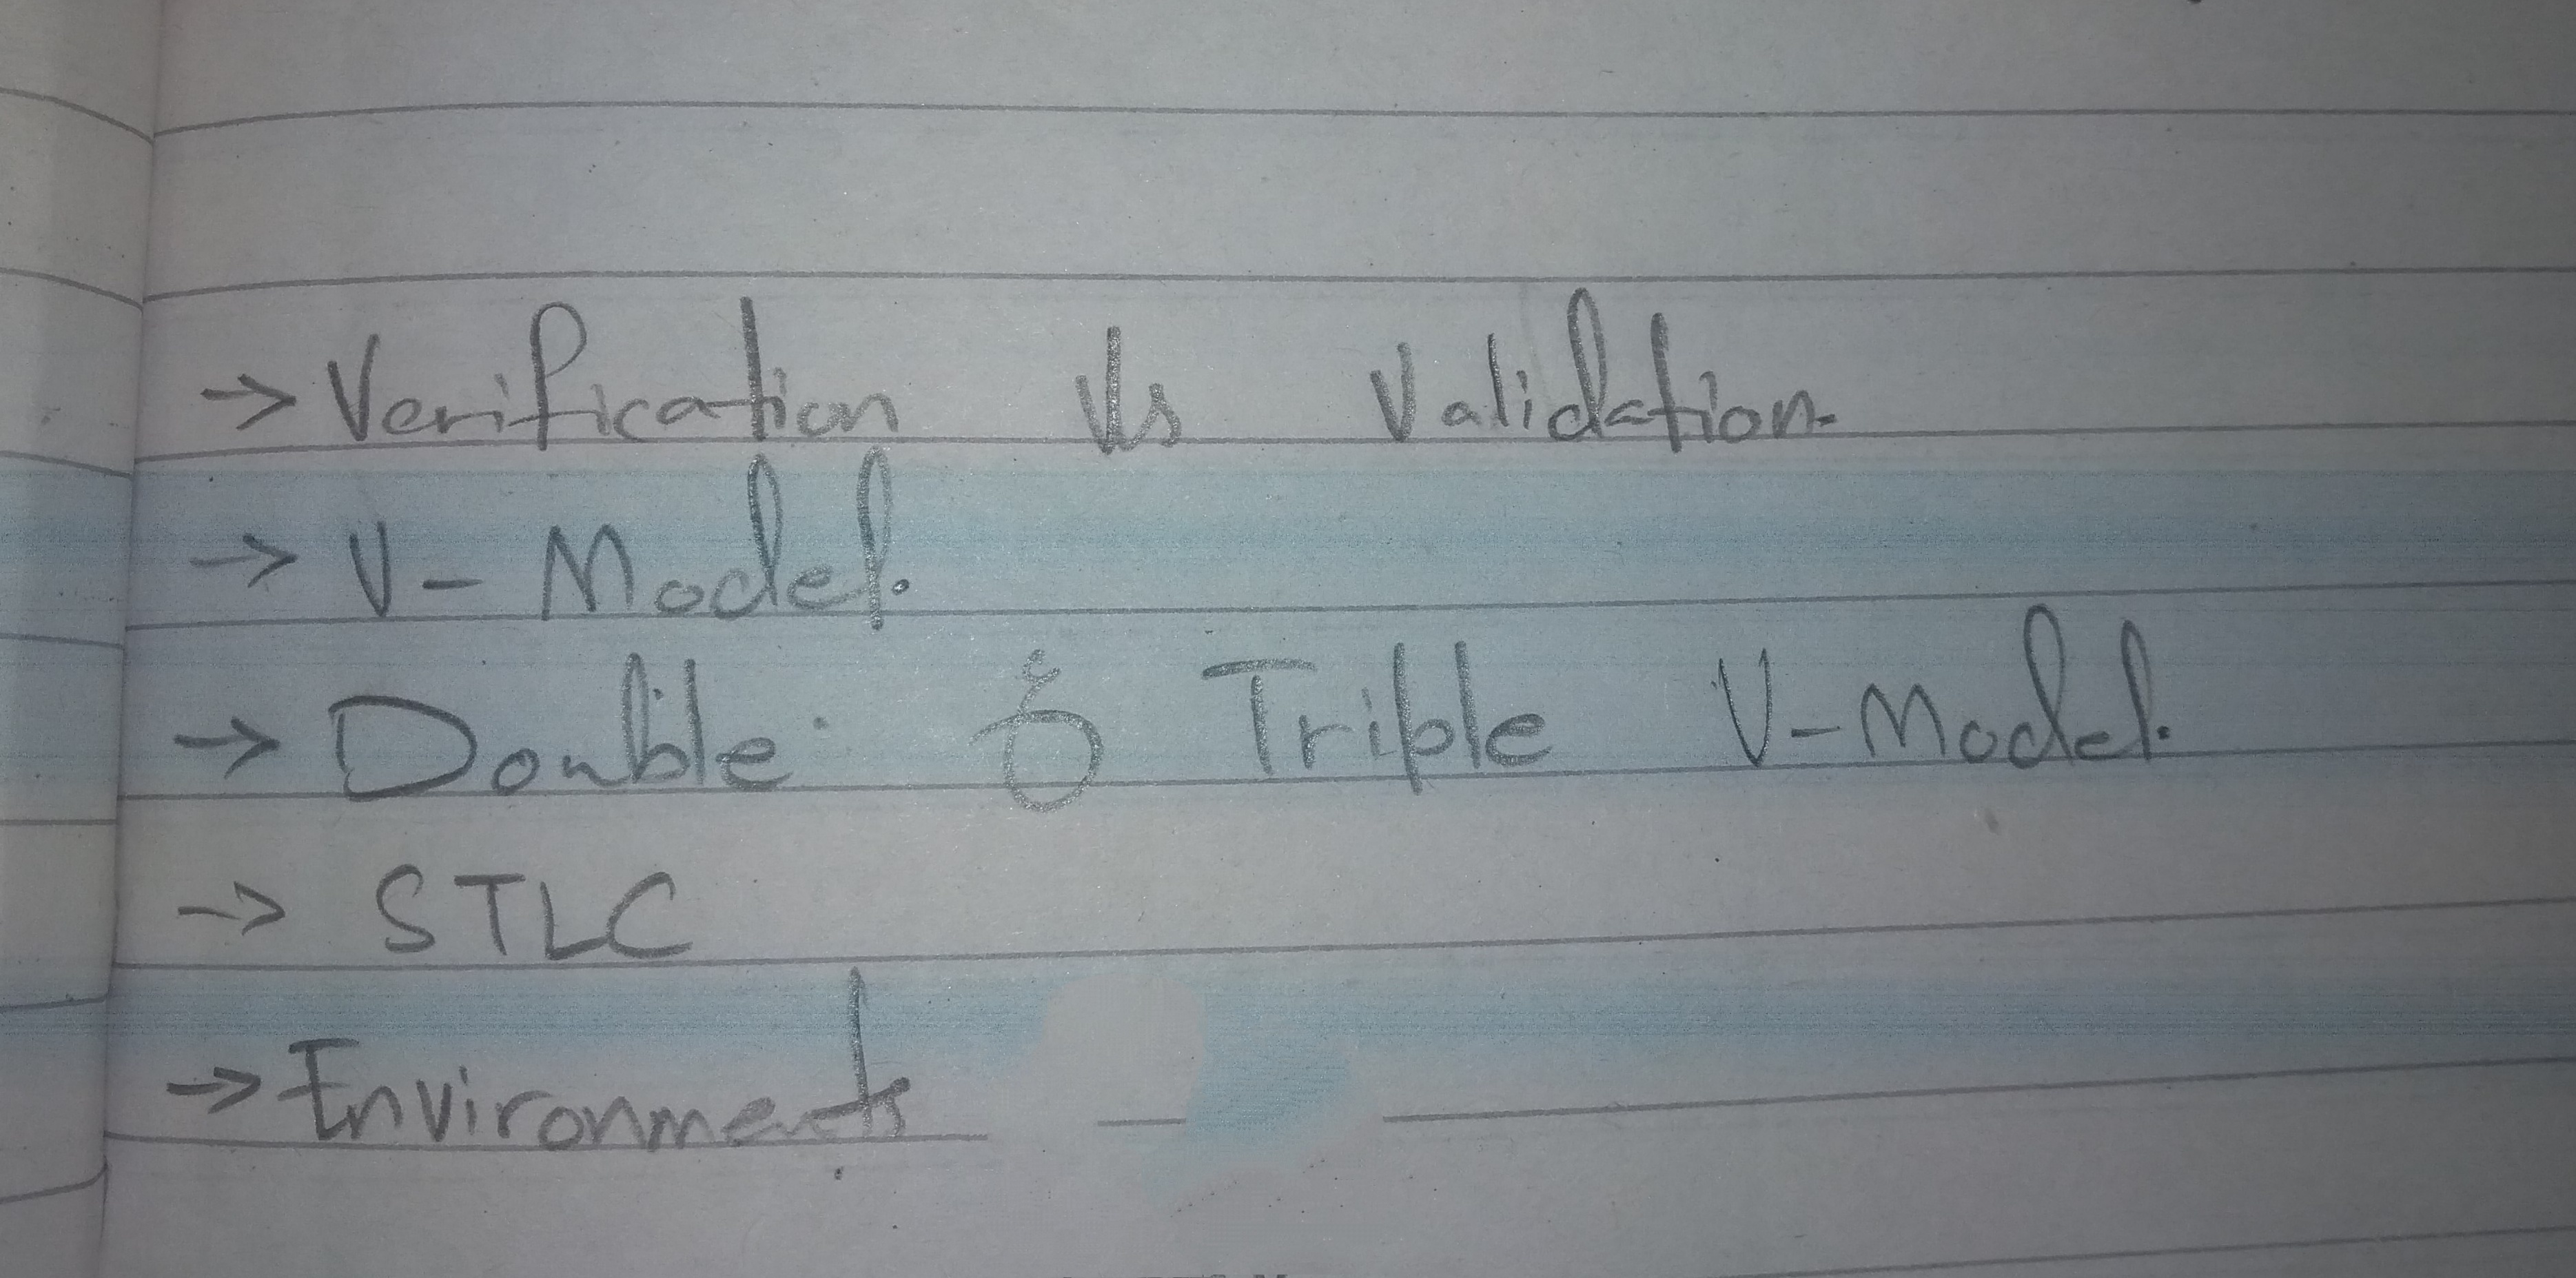 → Verification Vs Validation.
→ V- Model.
→ Double & Triple V-Model.
→ STLC
→ Environments